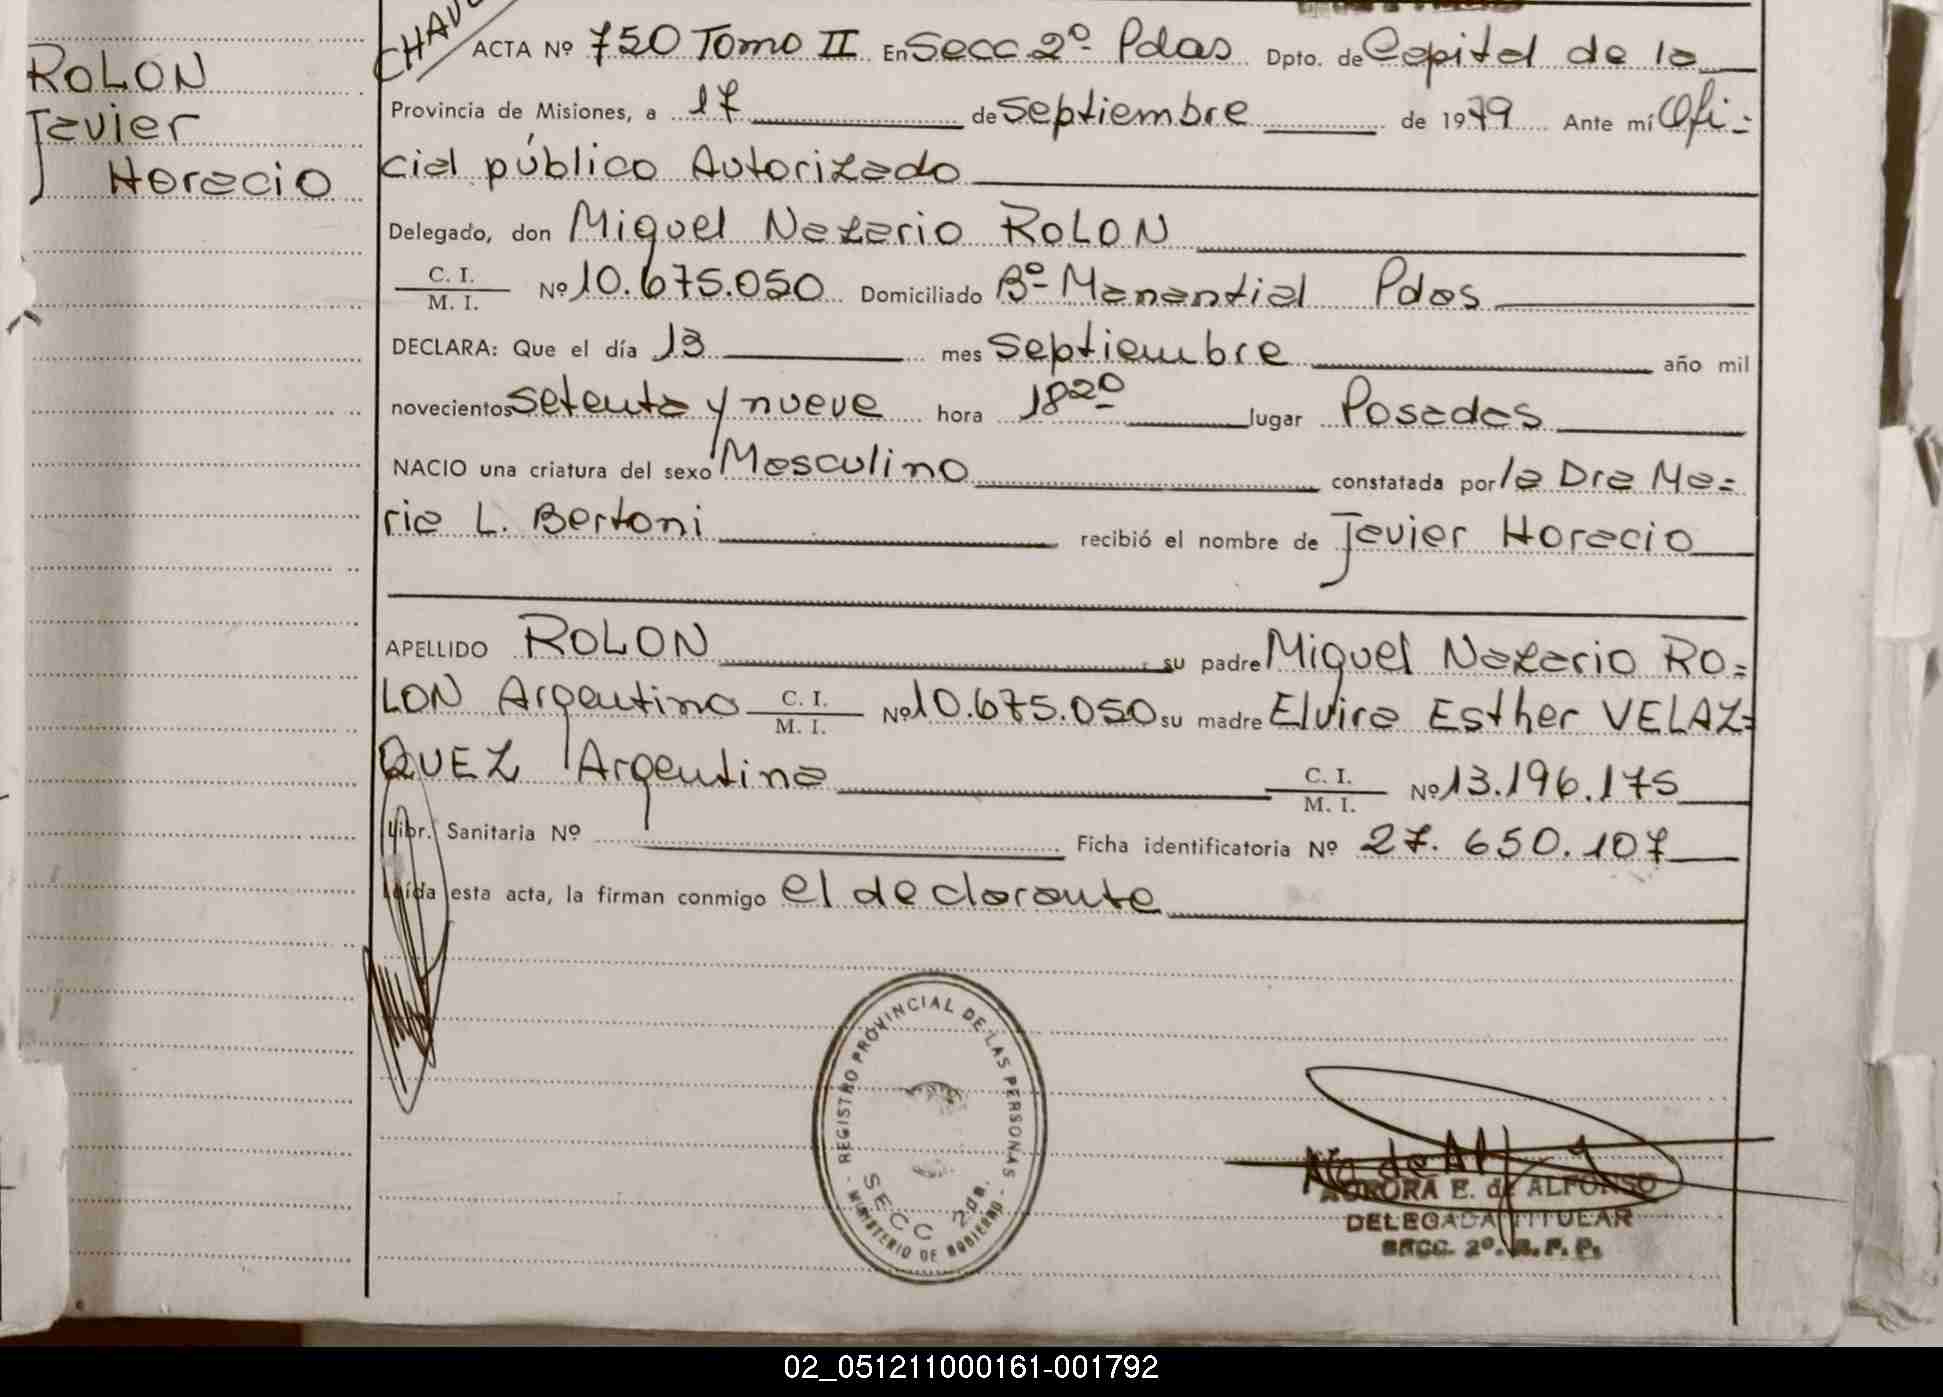 ROLON
Javier
Horacio
CHAV
ACTA Nº 750 Tomo II En Secc 2º Pdas Dpto. de Capital de la
Provincia de Misiones, a 17 de Septiembre de 1979 Ante mí Ofi-
cial público Autorizado
Delegado, don Miguel Nazario ROLON
C. I.
M. I. Nº 10.675.050 Domiciliado Bº Manantial Pdas
DECLARA: Que el día 13 mes Septiembre año mil
novecientos setenta y nueve hora 18 20 lugar Posadas
NACIO una criatura del sexo Masculino constatada por la Dra Ma=
ria L. Bertoni recibió el nombre de Javier Horacio
APELLIDO ROLON su padre Miguel Nazario RO=
LON Argentino C. I. M. I. Nº 10.675.050 su madre Elvira Esther VELAZ=
QUEZ Argentina C. I. M. I. Nº 13.196.175
Libr. Sanitaria Nº Ficha identificatoria Nº 27.650.107
Leída esta acta, la firman conmigo el declarante
REGISTRO PROVINCIAL DE LAS PERSONAS
SECC 2da.
- MINISTERIO DE GOBIERNO -
AURORA E. de ALFONSO
DELEGADA TITULAR
SECC. 2º. R. P. P.
02_051211000161-001792